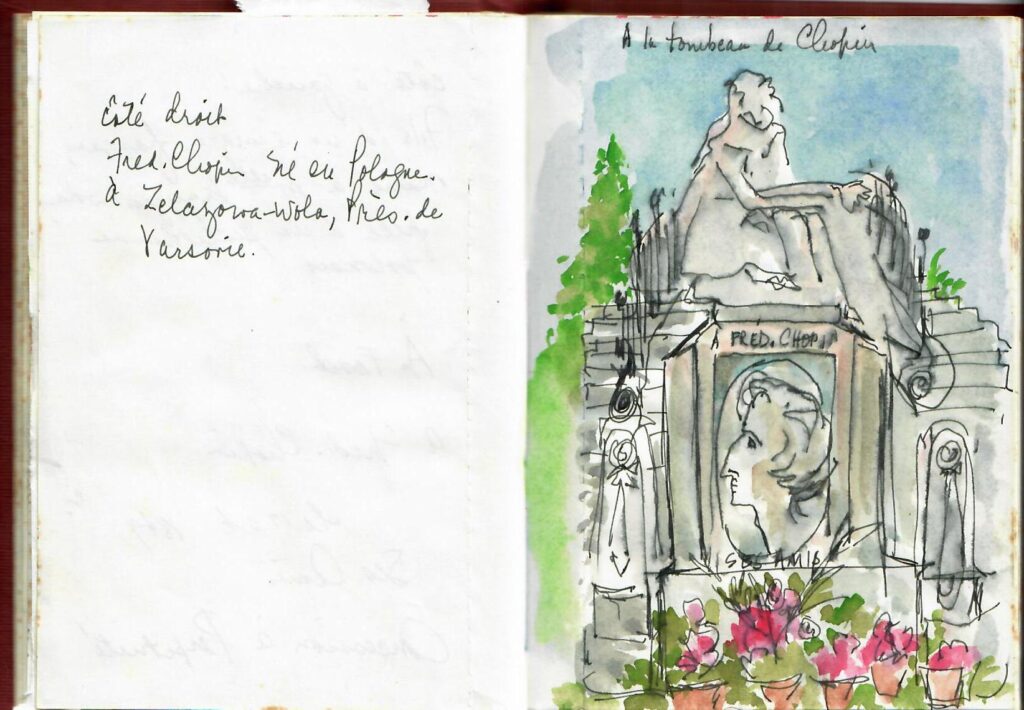 Côté droit
Fred. Chopin né en Pologne.
à Zelazowa-Wola, Près. de
Varsovie.
A la tombeau de Chopin
A FRED. CHOPIN
SES AMIS